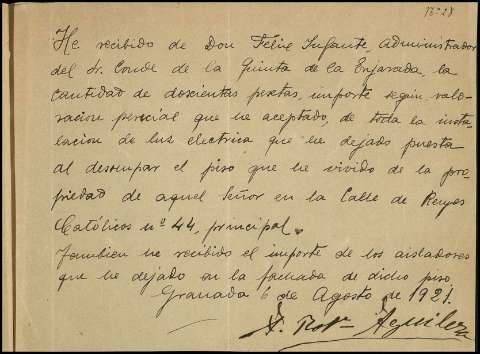 He recibido de Don Félix Infante, administrador
del Sr. Conde de la Quinta de la Enjarada, la
cantidad de doscientas pesetas, importe según valo-
racion pericial que he aceptado, de toda la insta-
lacion de luz electrica que he dejado puesta
al desocupar el piso que he vivido de la pro-
piedad de aquel Señor en la Calle de Reyes
Católicos nº 44, principal.
Tambien he recibido el importe de los aisladores
que he dejado en la fachada de dicho piso
Granada 6 de Agosto de 1921.
Aguilera